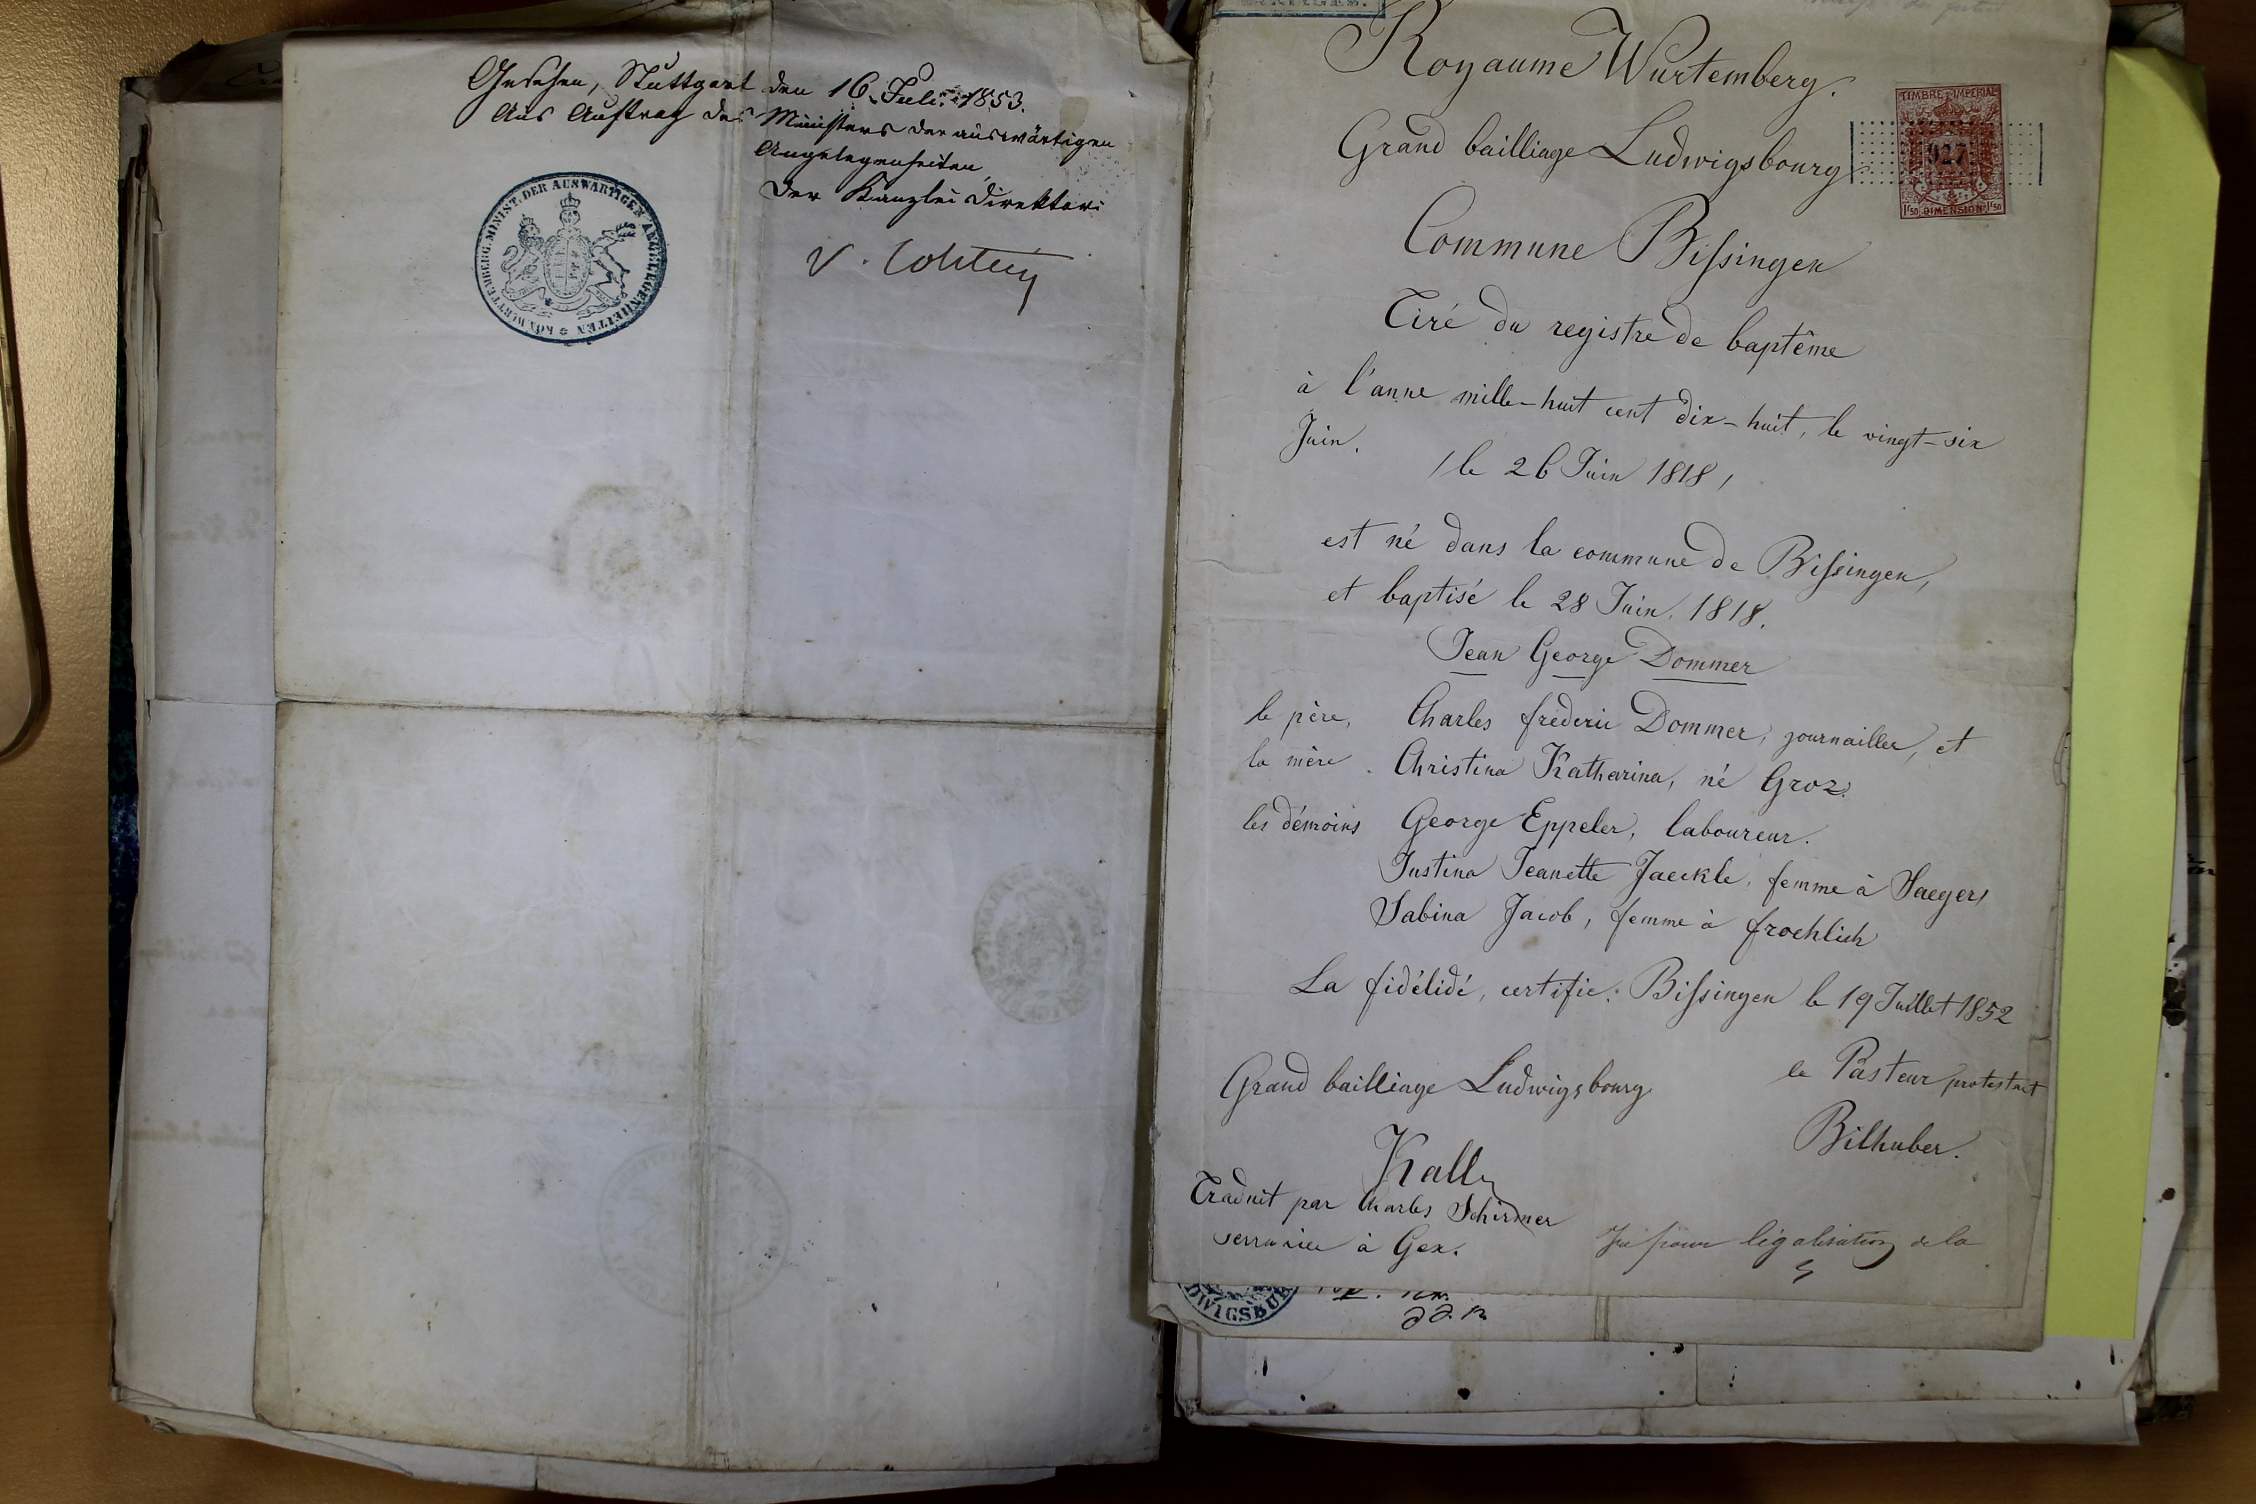 Gesehen, Stuttgart den 16. Juli 1853.
Aus Auftrag des Ministers der auswärtigen
Angelegenheiten
Der Kanzlei Direktor:
v.
KÖN. WÜRTTEMBERG. MINIST. DER AUSWÄRTIGEN ANGELEGENHEITEN
Royaume Wurtemberg.
TIMBRE IMPERIAL
927
1f50 DIMENSION 1f50
Grand bailliage Ludwigsbourg
Commune Bissingen
Tiré du registre de baptême
à l'anne mille-huit cent dix-huit, le vingt-six
Juin.
/ le 26 Juin 1818 /
est né dans la commune de Bissingen,
et baptisé le 28 Juin 1818.
Jean George Dommer
le père, Charles frederic Dommer, journailler, et
la mère. Christina Katharina, né Groz.
les démoins George Eppeler, laboureur.
Justina Jeanette Jaeckle, femme à Saeger,
Sabina Jacob, femme à froehlich
La fidélidé, certifie: Bissingen le 19 Juillet 1852
Grand bailliage Ludwigsbourg
le Pasteur protestant
Bilhuber.
Kall
Traduit par Charles Schirmer
serrurier à Gex.
Vu pour légalisation de la
DWIGSBUR